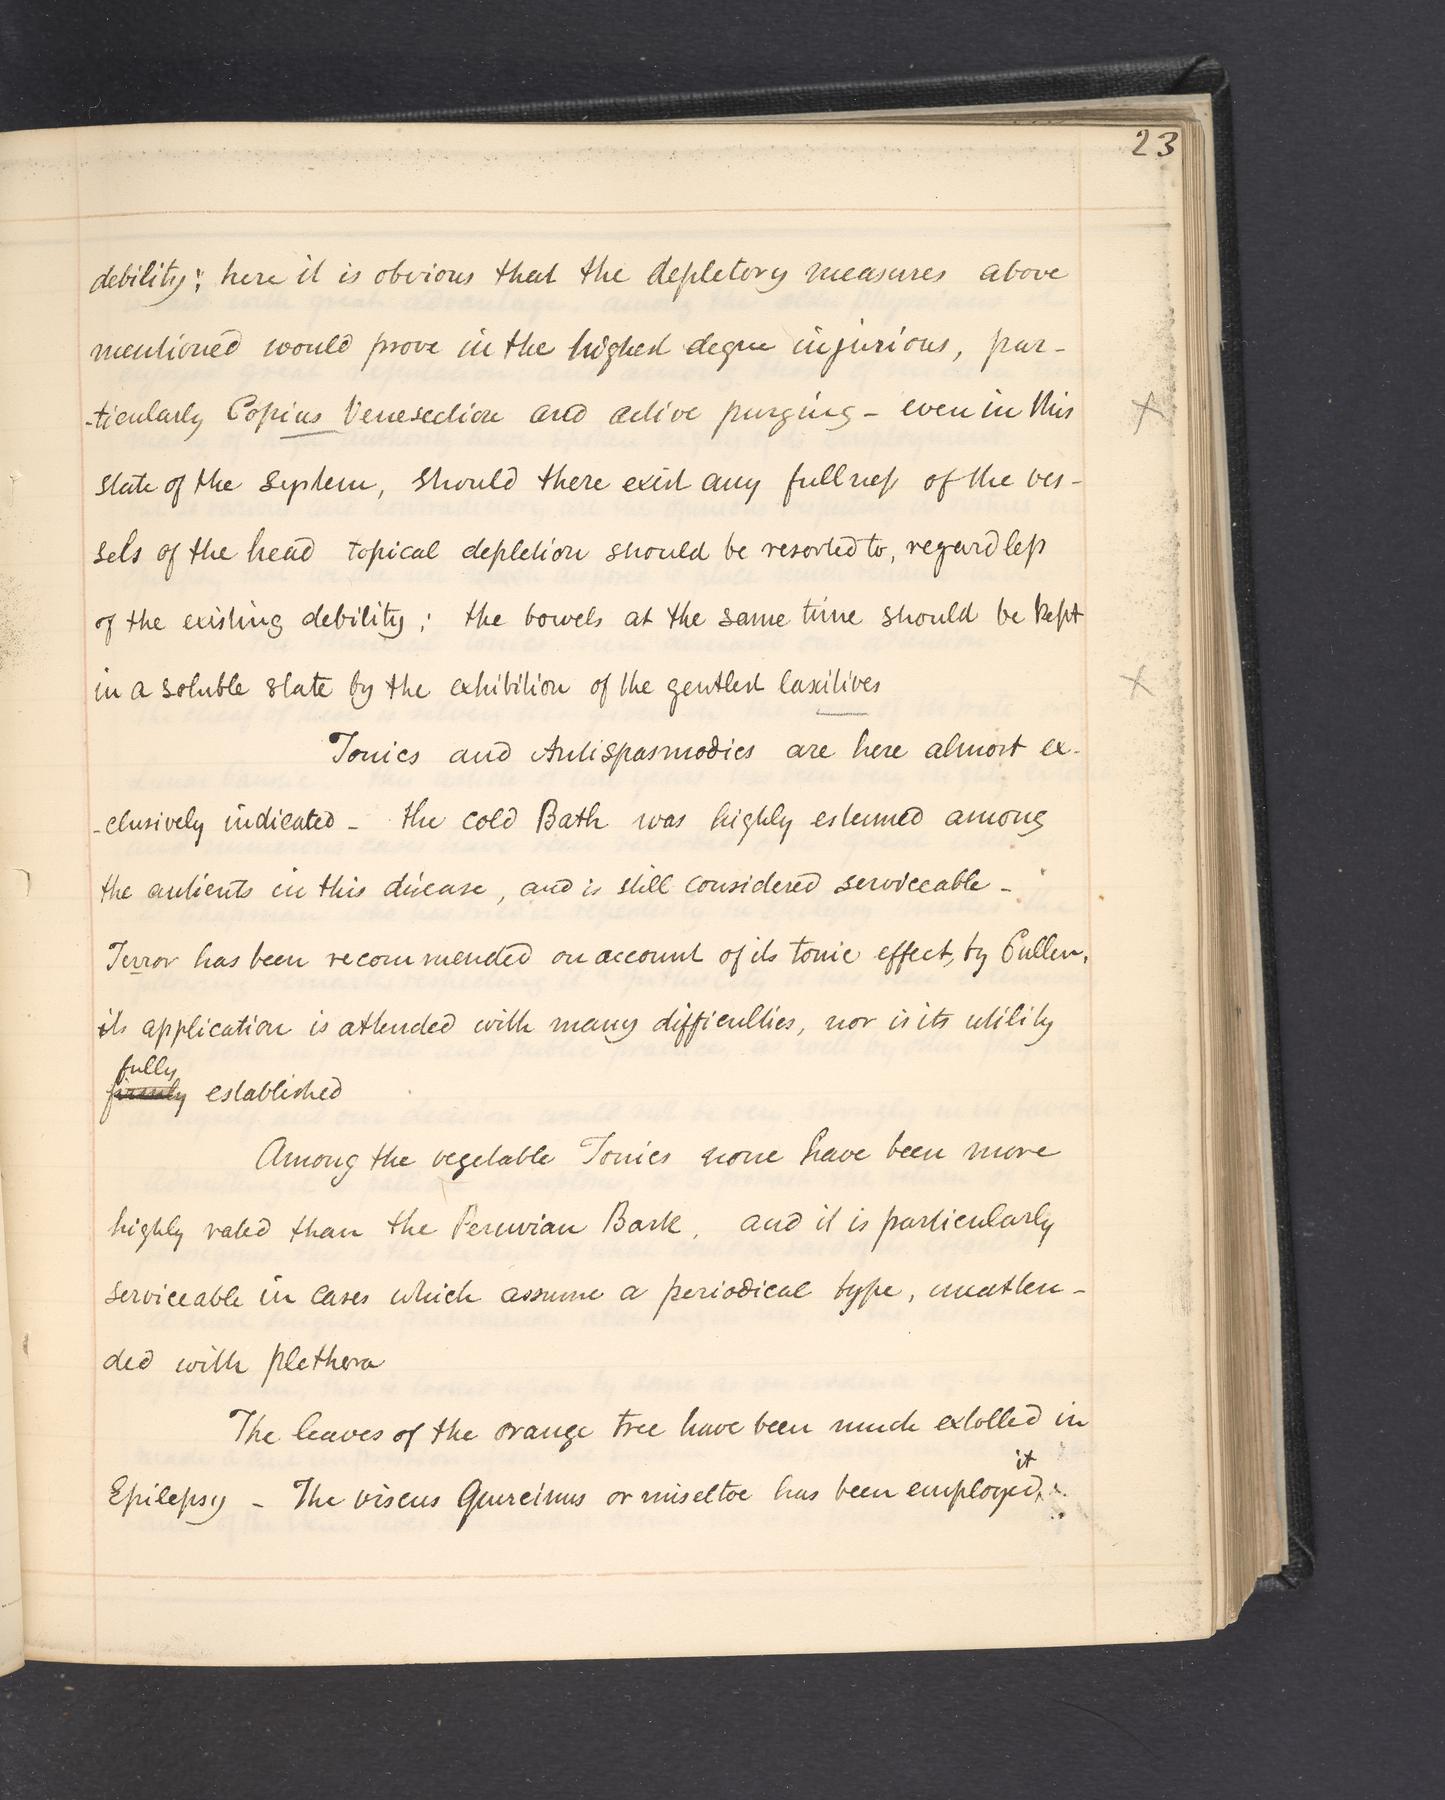 23
debility; here it is obvious that the depletory measures above
mentioned would prove in the highest degree injurious, par-
-ticularly Copius Venesection and active purging - even in this
state of the system, should there exist any fullness of the ves-
sels of the head topical depletion should be resorted to, regardless
of the existing debility; the bowels at the same time should be kept
in a soluble state by the exhibition of the gentlest laxitives
Tonics and Antispasmodics are here almost ex-
-clusively indicated - the cold Bath was highly esteemed among
the antients in this disease, and is still considered serviceable -
Terror has been recommended on account of its tonic effect, by Cullen,
its application is attended with many difficulties, nor is its utility
fully
firmly established
Among the vegetable Tonics none have been more
highly rated than the Peruvian Bark, and it is particularly
serviceable in cases which assume a periodical type, unatten-
ded with plethora
The leaves of the orange tree have been much extolled in
it
Epilepsy - The viscus Quercinus or miseltoe has been employed